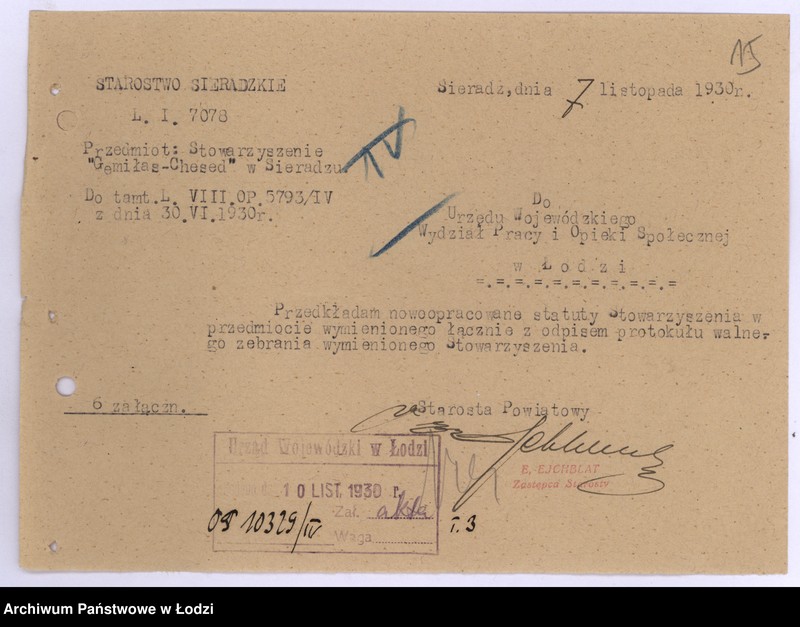 15
STAROSTWO SIERADZKIE
Sieradz,dnia 7 listopada 1930r.
L. I. 7078
Przedmiot: Stowarzyszenie
"Gęmiłas-Chesed" w Sieradzu.
IV
Do tamt.L. VIII.OP.5793/IV
z dnia 30.VI.1930r.
Do
Urzędu Wojewódzkiego
Wydział Pracy i Opieki Społecznej
w Łodzi
=.=.=.=.=.=.=.=.=.=
Przedkładam nowoopracowane statuty Stowarzyszenia w
przedmiocie wymienionego łącznie z odpisem protokułu walne-
go zebrania wymienionego Stowarzyszenia.
6 załączn.
Starosta Powiatowy
E. EJCHBLAT
Zastępca Starosty
Urząd Wojewódzki w Łodzi
10 LIST. 1930 r.
Zał. akta
10329/IV
Waga
T. 3
Archiwum Państwowe w Łodzi